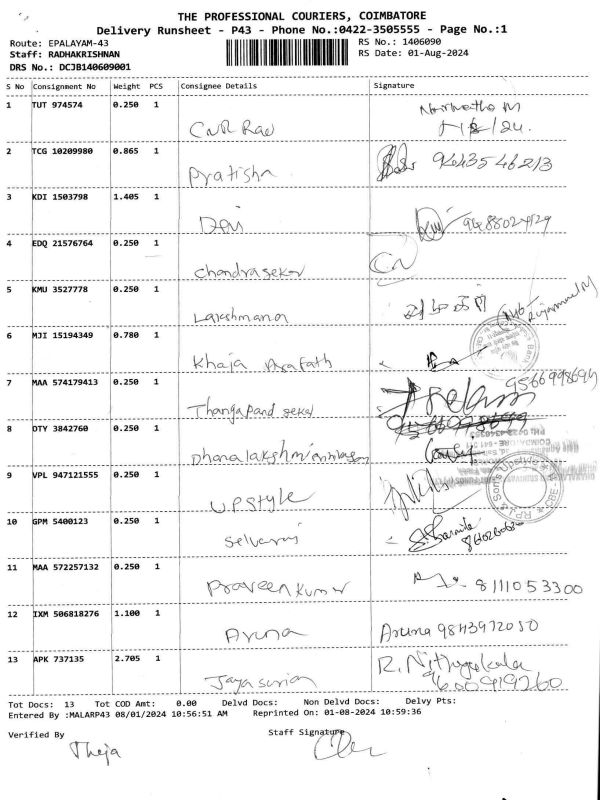 THE PROFESSIONAL COURIERS, COIMBATORE
Delivery Runsheet - P43 - Phone No.:0422-3505555 - Page No.:1
Route: EPALAYAM-43 RS No.: 1406090
Staff: RADHAKRISHNAN RS Date: 01-Aug-2024
DRS No.: DCJB140609001
S No Consignment No Weight PCS Consignee Details Signature
1 TUT 974574 0.250 1
CNR Rao
2 TCG 10209980 0.865 1
Pratisha
3 KDI 1503798 1.405 1
Devi
4 EDQ 21576764 0.250 1
Chandrasekar
5 KMU 3527778 0.250 1
Lakshmana
6 MJI 15194349 0.780 1
Khaja Arafath
7 MAA 574179413 0.250 1
9566998699
Thangapand sekar
8 DTY 3842760 0.250 1
9VPL 947121555 0.250 1
U.P.Style
10 GPM 5400123 0.250 1
Selvaraj
11 MAA 572257132 0.250 1
Praveen Kumar 8111053300
12 IXM 506818276 1.100 1
Aruna Aruna 9843972050
13 APK 737135 2.705 1
R. Nithyakala
Jayasurian 9600919260
Tot Docs: 13 Tot COD Amt: 0.00 Delvd Docs: Non Delvd Docs: Delvy Pts:
Entered By :MALARP43 08/01/2024 10:56:51 AM Reprinted On: 01-08-2024 10:59:36
Verified By Staff Signature
Theja